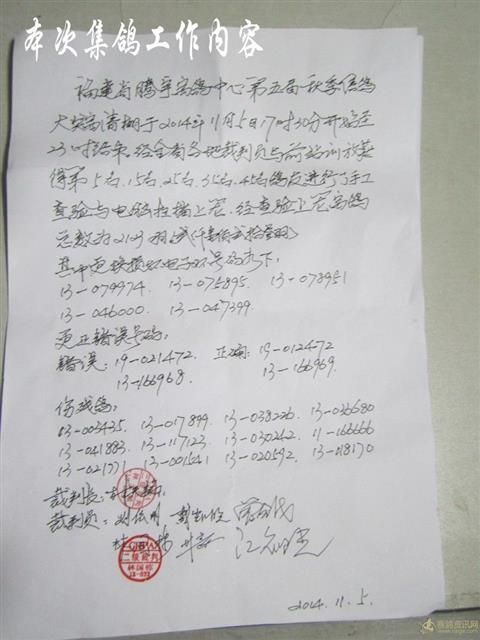 本次集鸽工作内容
福建省腾宇赛鸽中心第五届秋季信鸽
大奖赛清棚于2014年11月5日17时30分开始至
23时结束。经全省各地裁判员与前站训放获
得第5名、15名、25名、35名、45名鸽友进行了手工
查验与电脑扫描上笼。经查验上笼赛鸽
总数为2123羽
其中更换损坏电子环号码如下:
13-079974. 13-075895. 13-078951
13-046000. 13-047399.
更正错误号码:
错误: 19-021472. 正确: 19-012472
13-166968. 13-166969.
伤残鸽:
03-003435. 13-017899. 13-038226. 13-026680
13-041883. 13-117123. 13-030262. 11-166666
13-021771 13-001541 13-020592. 13-018170
裁判长:
裁判员:
CRPA
二级裁判
林国栋
2014.11.5.
赛鸽资讯网